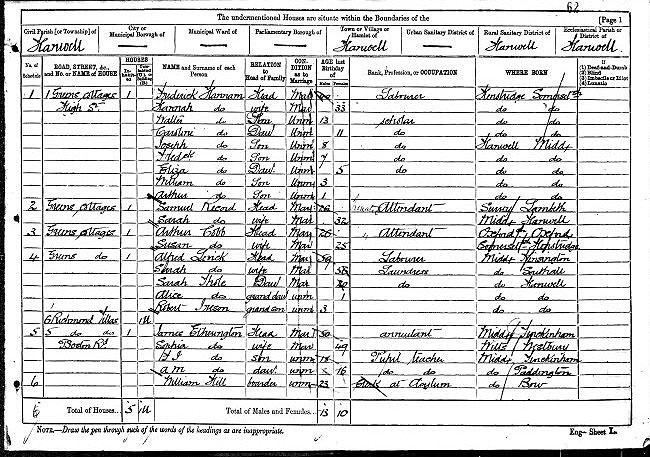 62
The undermentioned Houses are situate within the Boundaries of the
[Page 1
Civil Parish [or Township] of
City or Municipal Borough of
Municipal Ward of
Parliamentary Borough of
Town or Village or Hamlet of
Urban Sanitary District of
Rural Sanitary District of
Ecclesiastical Parish or District of
Hanwell Hanwell Hanwell Hanwell
No. of Schedule
ROAD, STREET, &c., and No. or NAME of HOUSE
HOUSES
NAME and Surname of each Person
RELATION to Head of Family
CONDITION as to Marriage
AGE last Birthday of
Males Females
Rank, Profession, or OCCUPATION
WHERE BORN
If
(1) Deaf-and-Dumb
(2) Blind
(3) Imbecile or Idiot
(4) Lunatic
1 1 Greens Cottages 1 Frederick Hannam Head Mar Labourer Henstridge Somerset
High St. Hannah do wife Mar 33 do do
Walter do Son Unm 13 scholar do do
Caroline do Daur Unm 11 do do do
Joseph do Son Unm 8 do Hanwell Middx
Fredck do Son Unm 7 do do do
Eliza do Daur Unm 5 do do do
William do Son Unm 3 do do
Arthur do Son Unm 1 do do
2 Greens Cottages 1 Samuel Head Mar Attendant Surrey Lambeth
Sarah do wife Mar 32 Middx Hanwell
3 Greens Cottages 1 Arthur Cobb Head Mar 26 Attendant Oxford Oxford
Susan do wife Mar 25 Somerset Henstridge
4 Greens do 1 Alfred Head Mar 59 Labourer Middx Kensington
Sarah do wife Mar 58 Laundress do Southall
Sarah Daur Mar do do Hanwell
Alice do grand daur unm 1 do do
Robert grand son unm 3 do do
6 Richmond Villas 1U
5 5 do do 1 James Etherington Head Mar 50 annuitant Middx Twickenham
Boston Rd. Sophia do wife Mar 49 Wilts Westbury
do son unm 18 Pupil teacher Middx Twickenham
A M do daur unm 16 do do do Paddington
6 William Hill boarder unm 23 Clerk at Asylum do Bow
6 Total of Houses... 5 1U Total of Males and Females... 13 10
NOTE.—Draw the pen through such of the words of the headings as are inappropriate.
Eng—Sheet L.